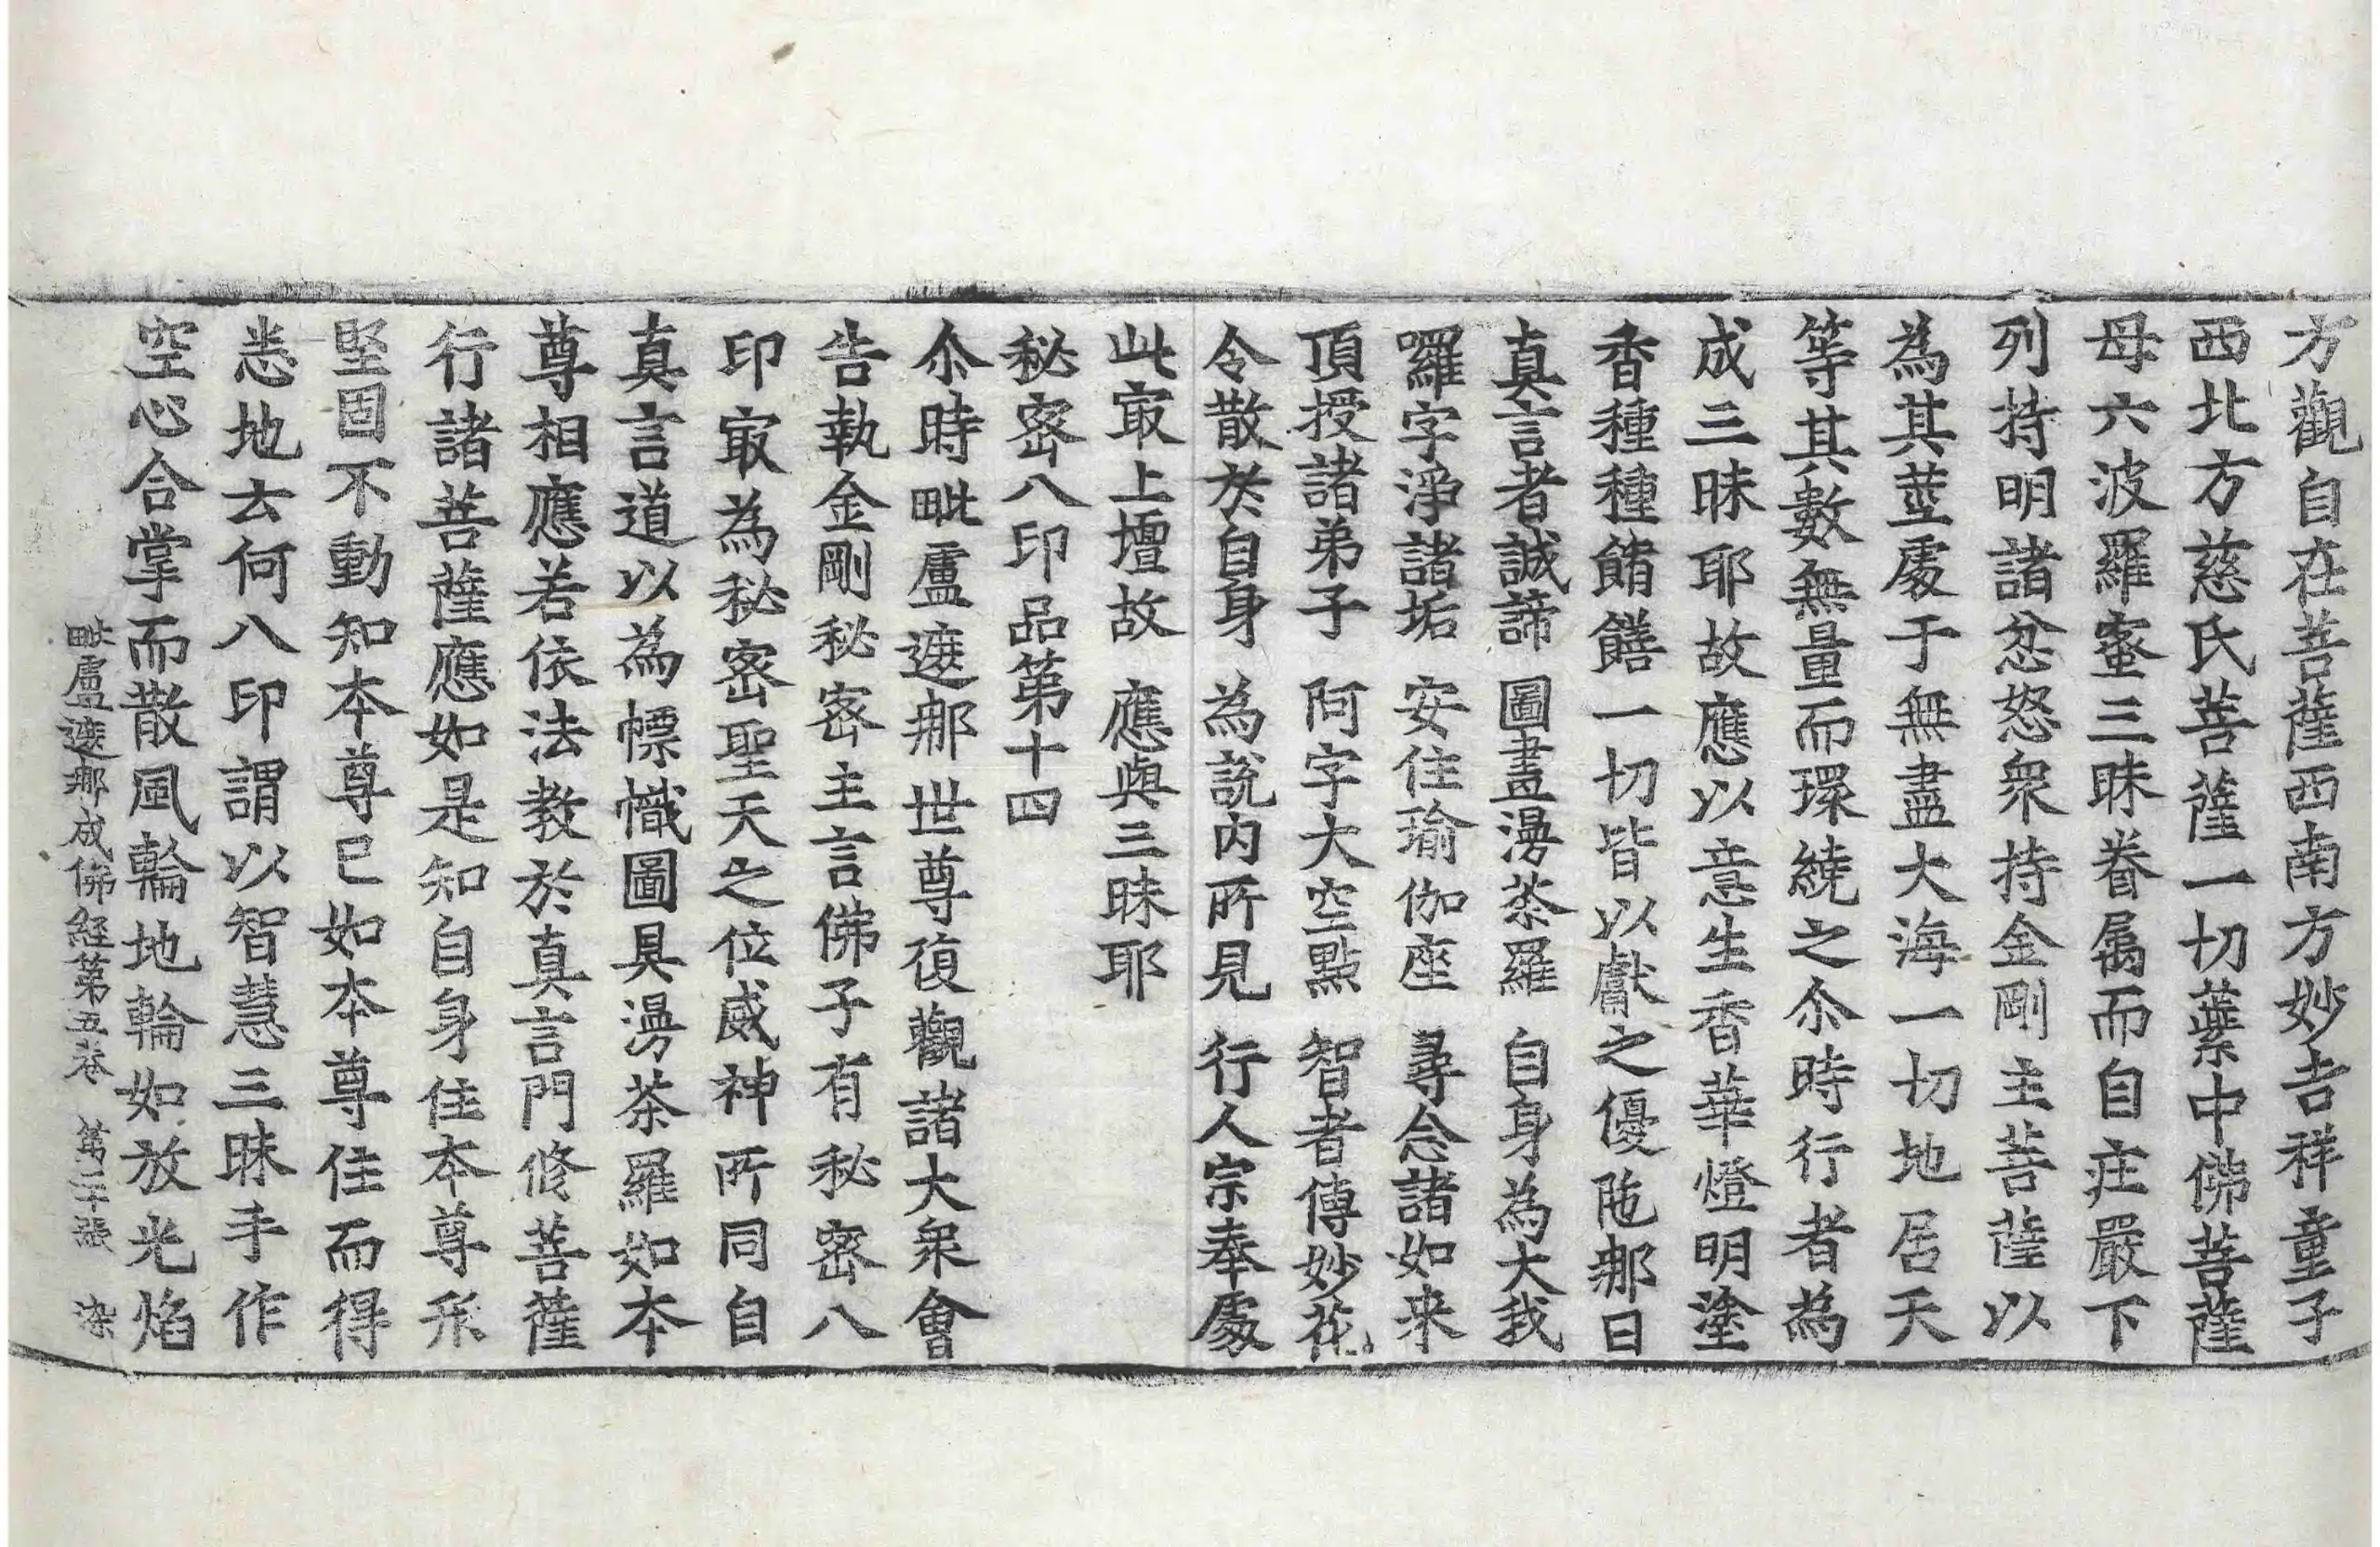 方觀自在菩薩西南方妙吉祥童子
西北方慈氏菩薩一切蘂中佛菩薩
母六波羅蜜三昧眷属而自庄嚴下
列持明諸忿怒衆持金剛主菩薩以
為其莖處于無盡大海一切地居天
等其數無量而環繞之尒時行者為
成三昧耶故應以意生香華燈明塗
香種種餚饍一切皆以獻之優陁那曰
真言者誠諦　圖畫漫荼羅　自身為大我
囉字淨諸垢　安住瑜伽座　尋念諸如来
頂授諸弟子　阿字大空點　智者傳妙花
令散於自身　為說内所見　行人宗奉處
此㝡上壇故　應與三昧耶
秘密八印品第十四
尒時毗盧遮那世尊復觀諸大衆會
告執金剛秘密主言佛子有秘密八
印㝡為秘密聖天之位威神所同自
真言道以為幖幟圖具漫荼羅如本
尊相應若依法教於真言門修菩薩
行諸菩薩應如是知自身住本尊形
堅固不動知本尊已如本尊住而得
悉地云何八印謂以智慧三昧手作
空心合掌而散風輪地輪如放光焰
毗盧遮那成佛經第五卷　第二十張　染